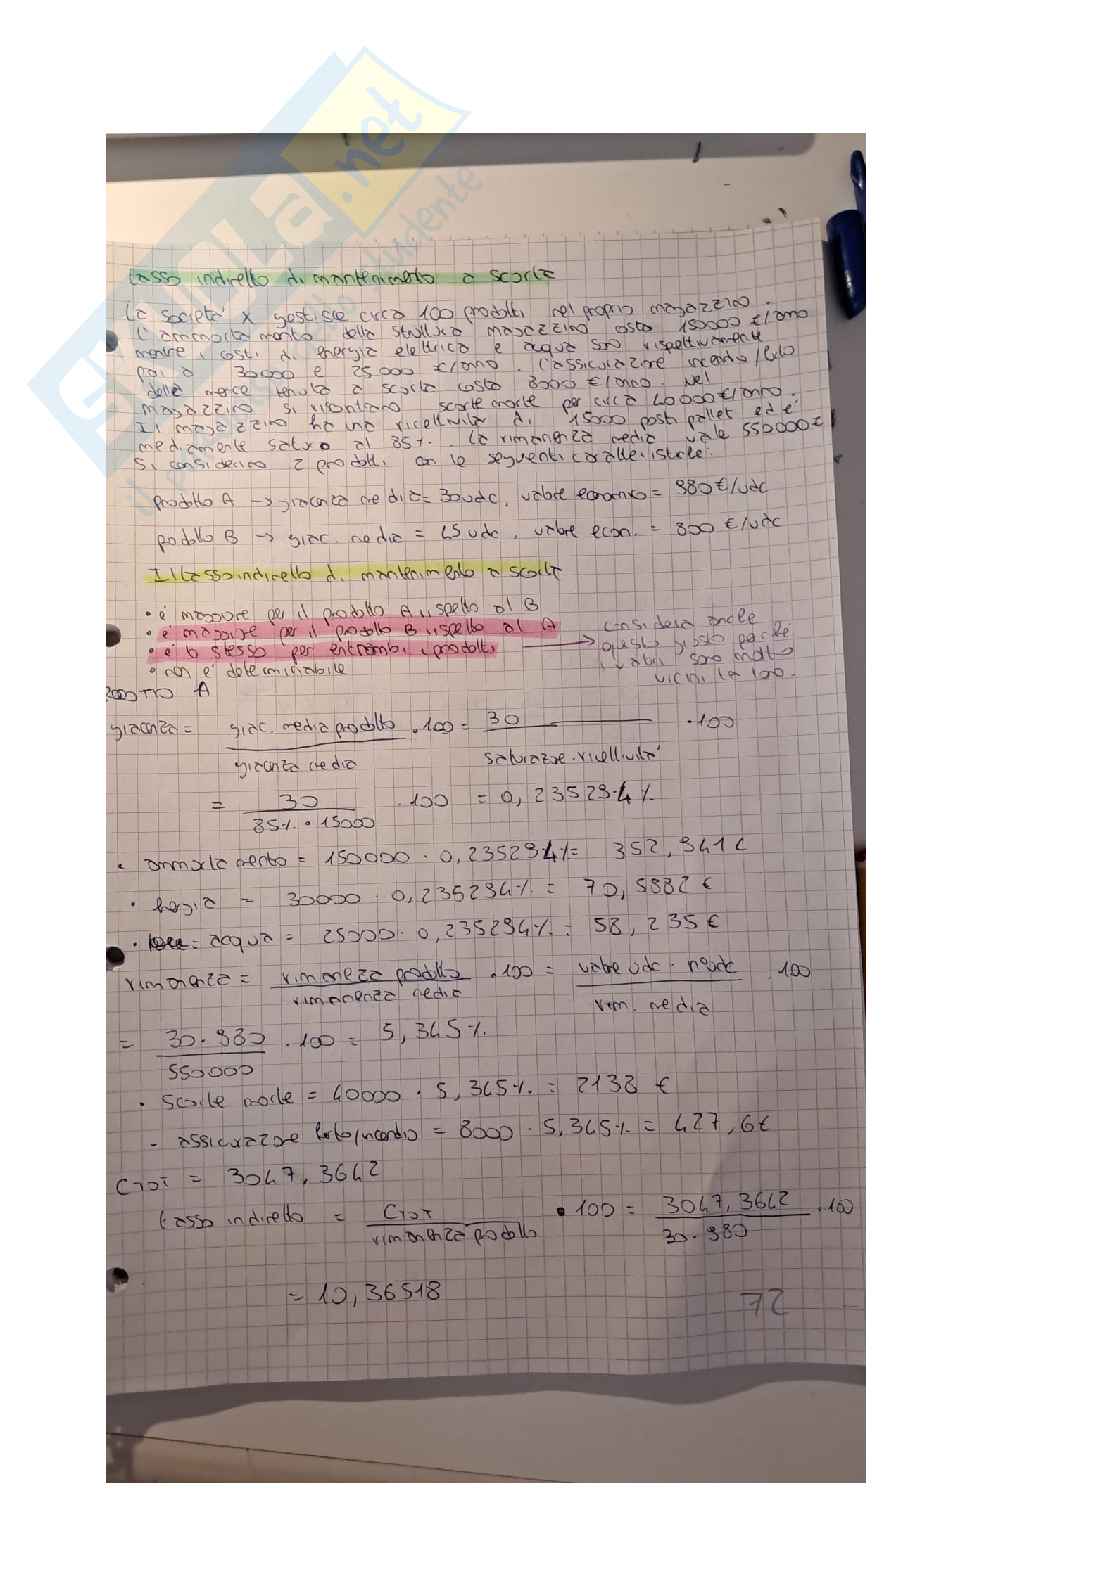 tasso indiretto di mantenimento a scorta
La società x gestisce circa 100 prodotti nel proprio magazzino.
L'ammortamento della struttura magazzino costa 150000 €/anno
mentre i costi di energia elettrica e acqua sono rispettivamente
pari a 30000 e 25000 €/anno. L'assicurazione incendio/furto
della merce tenuta a scorta costa 8000 €/anno. Nel
magazzino si riscontrano scorte morte per circa 40000 €/anno.
Il magazzino ha una ricettività di 15000 posti pallet ed è
mediamente saturo al 85%. La rimanenza media vale 550000 €
Si considerino 2 prodotti con le seguenti caratteristiche:
prodotto A → giacenza media = 30 udc, valore economico = 980 €/udc
prodotto B → giac. media = 25 udc, valore econ. = 800 €/udc
Il tasso indiretto di mantenimento a scorta
• è maggiore per il prodotto A rispetto al B
• è maggiore per il prodotto B rispetto al A
• è lo stesso per entrambi i prodotti →
• non è determinabile
considera anche
questo giusto perché
i valori sono molto
vicini tra loro.
PRODOTTO A
giacenza = giac. media prodotto / giacenza media . 100 = 30 / saturazione . ricettività . 100
= 30 / 85% . 15000 . 100 = 0,235294%
• ammortamento = 150000 . 0,235294% = 352,941 €
• energia = 30000 . 0,235294% = 70,5882 €
• acqua = 25000 . 0,235294% = 58,235 €
rimanenza = rimanenza prodotto / rimanenza media . 100 = valore udc . n° udc / rim. media . 100
= 30 . 980 / 550000 . 100 = 5,345%
• scorte morte = 40000 . 5,345% = 2138 €
- assicurazione furto/incendio = 8000 . 5,345% = 427,6 €
CTOT = 3047,3642
tasso indiretto = CTOT / rimanenza prodotto . 100 = 3047,3642 / 30 . 980 . 100
= 10,36518
72
SKUOLA.net